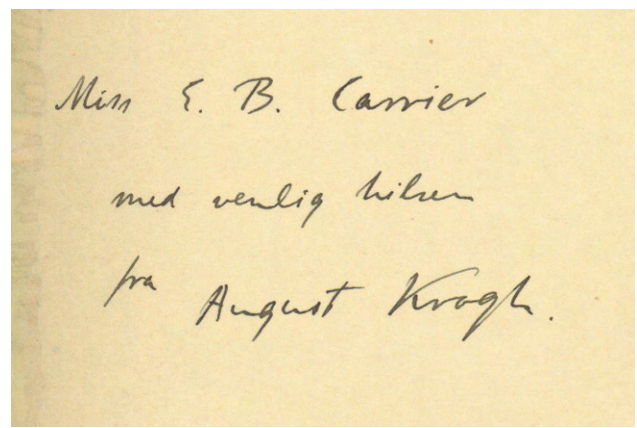 Miss E. B. Carrier
med venlig hilsen
fra August Krogh.